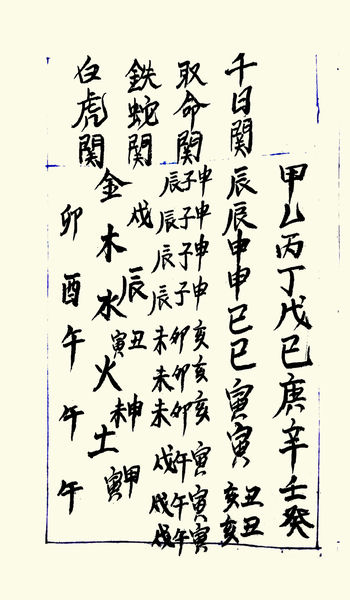 甲乙丙丁戊己庚辛壬癸
千日関 辰辰申申巳巳寅寅丑丑
亥亥
取命関 申申申申亥亥亥寅寅寅
子子子子卯卯卯午午午
辰辰辰辰未未未戌戌戌
鉄蛇関 金木水火土
戌 辰 丑寅 申未 甲寅
白虎関 卯酉午午午